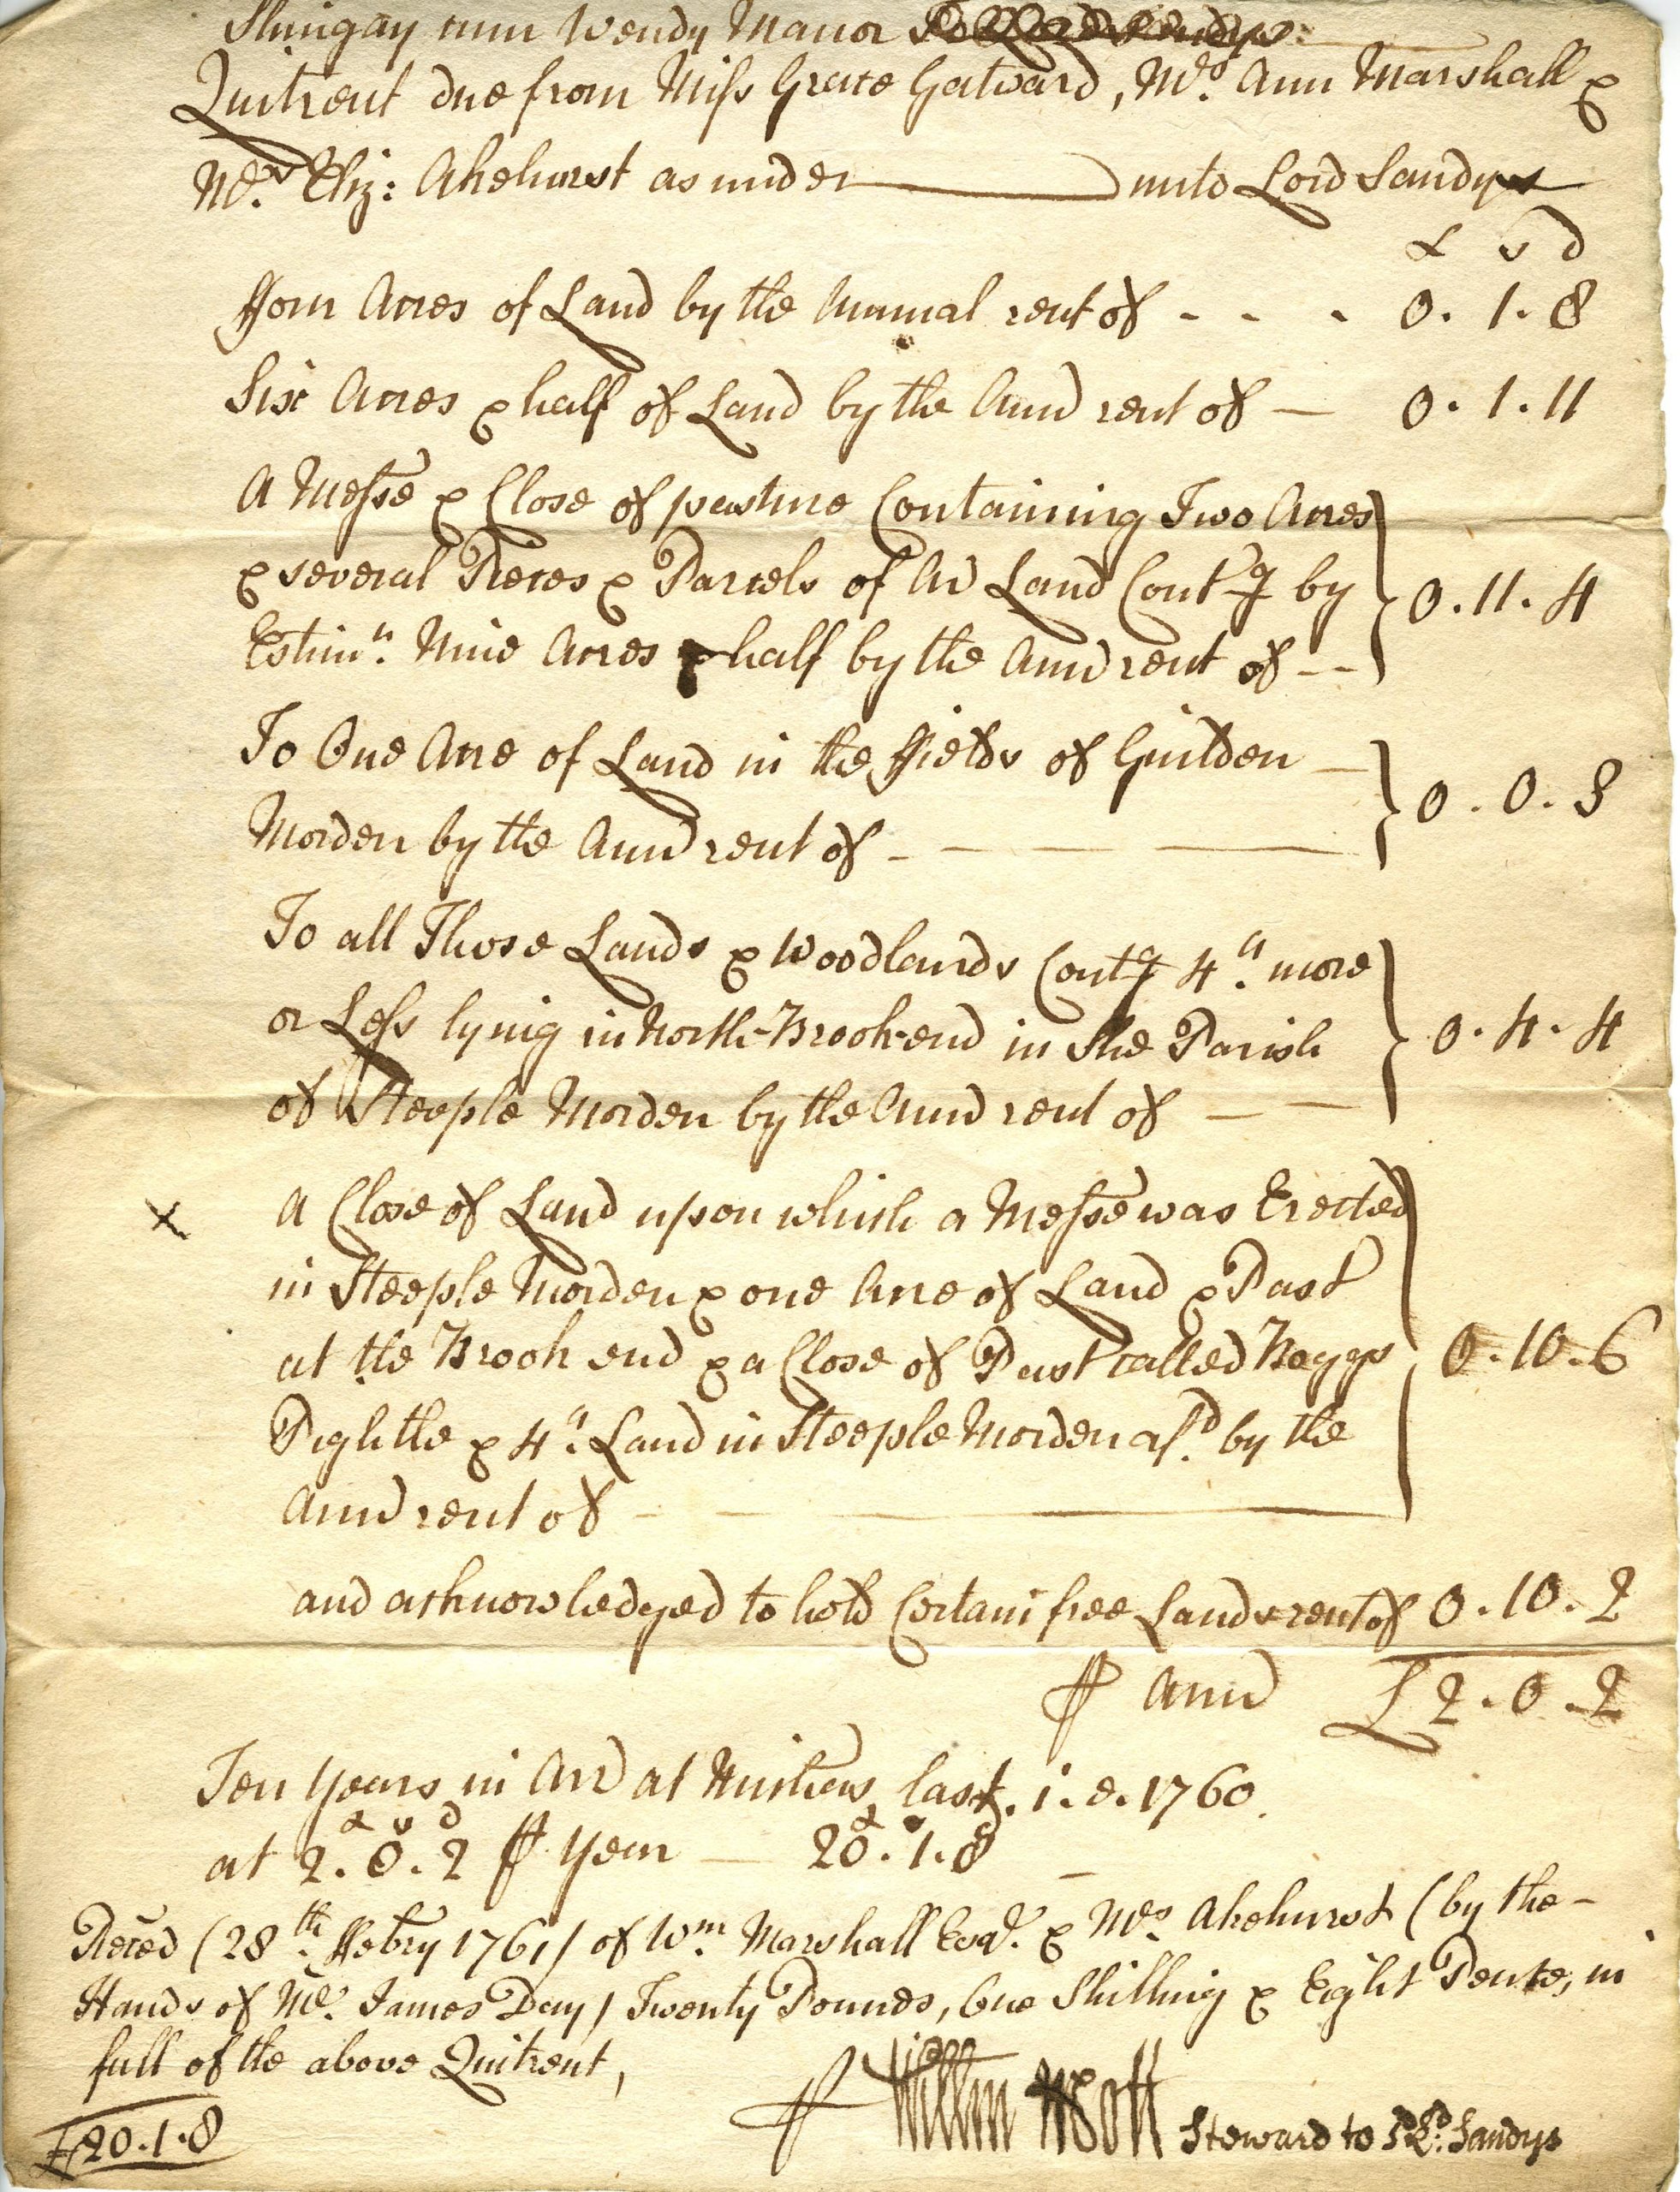 Shingay cum Wendy Manor
Quitrent due from Miss Grace Gatward, Mrs. Ann Marshall &
Mrs. Eliz: Akehurst as under unto Lord Sandys
£ s d
ffour Acres of Land by the Annual rent of - - - 0. 1. 8
Six Acres & half of Land by the Annl rent of — 0. 1. 11
A Messe & Close of pasture Containing Two Acres
& several Pieces & Parcels of Ar Land Contg by } 0. 11. 4
Estimn. Nine Acres & half by the Annl rent of --
To One Acre of Land in the ffields of Guilden — } 0. 0. 3
Morden by the Annl rent of -
To all Those Lands & Woodlands Contg 4a. more
or Less lying in North-Brook-end in the Parish } 0. 4. 4
of Steeple Morden by the Annl rent of — —
x A Close of Land upon which a Messe was Erected
in Steeple Morden & one Acre of Land & Past
at the Brook end & a Close of Past called Baggs } 0. 10. 6
Pightle & 4a. Land in Steeple Morden afd. by the
Annl rent of -
and acknowledged to hold Certain free Lands rent of 0. 10. 2
⅌ Ann £2. 0. 2
Ten Years in Arr at Michms last. i. e. 1760.
£ s d
at 2. 0. 2 ⅌ Year — 20. 1. 8
Reced (28th. ffebry 1761) of Wm. Marshall Esqr. & Mrs. Akehurst (by the-
Hands of Mr. James Day) Twenty Pounds, One Shilling & Eight Pence, in
full of the above Quitrent,
⅌ Willm Mott Steward to sd Ld. Sandys
£20. 1. 8